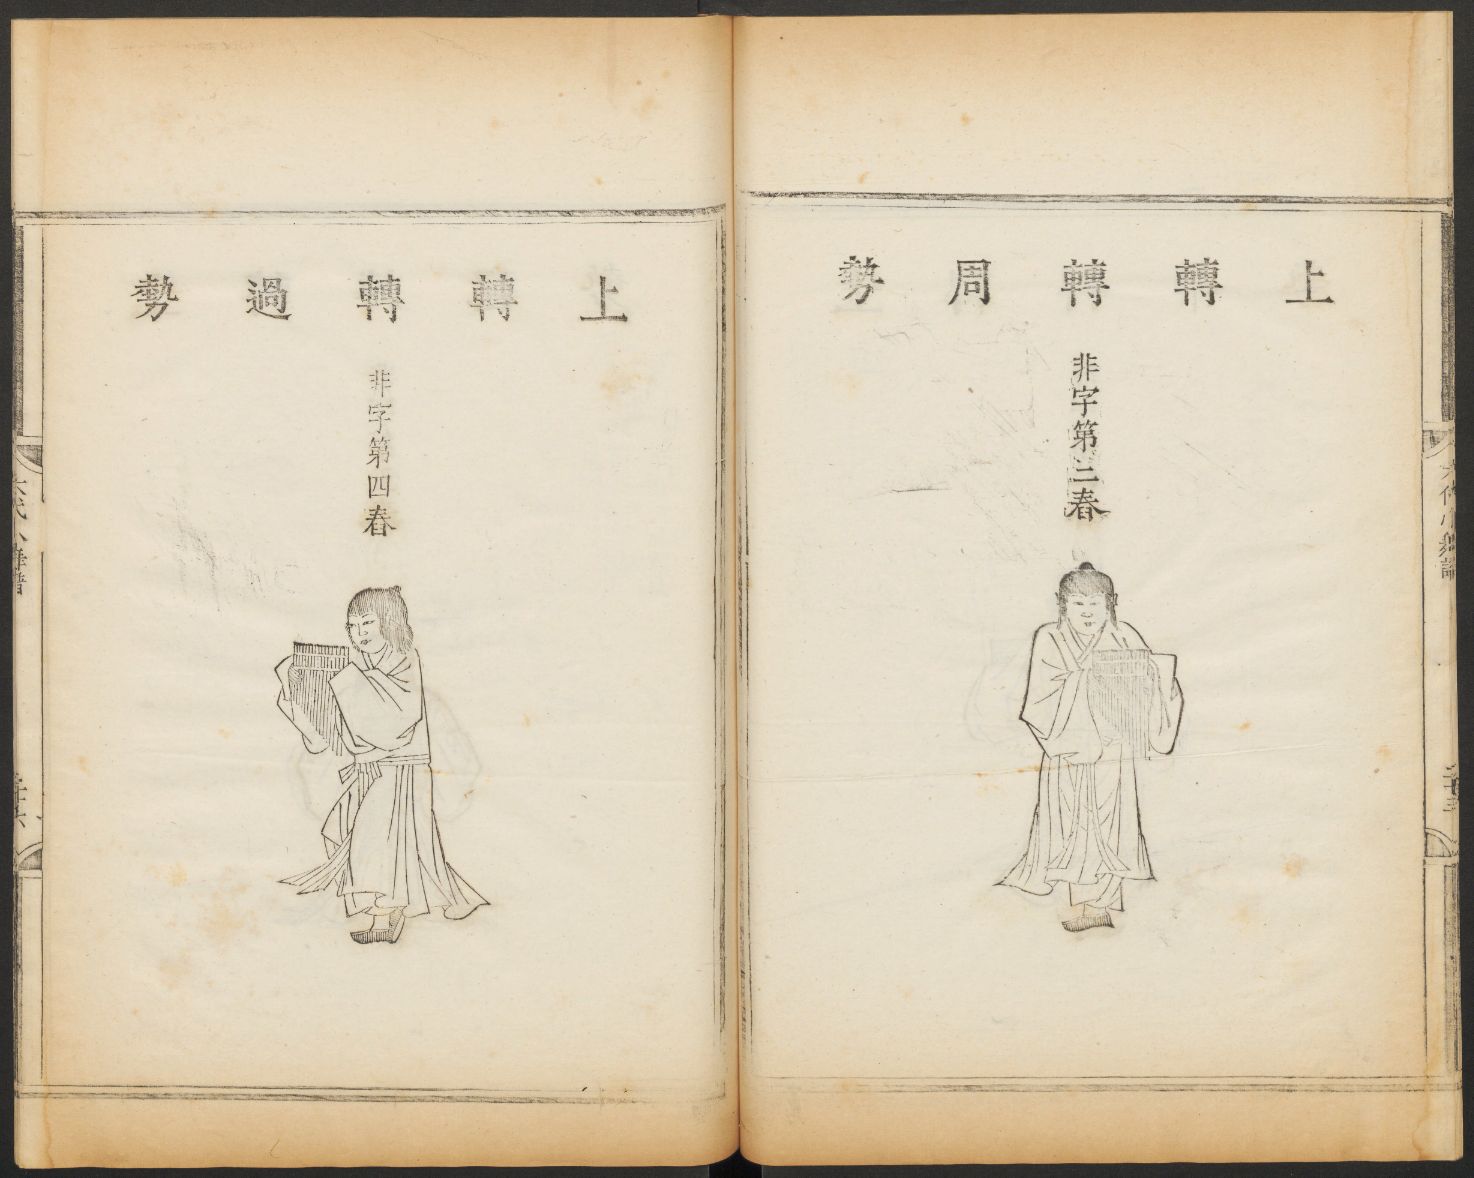 上轉轉周勢
非字第三春
上轉轉過勢
非字第四春